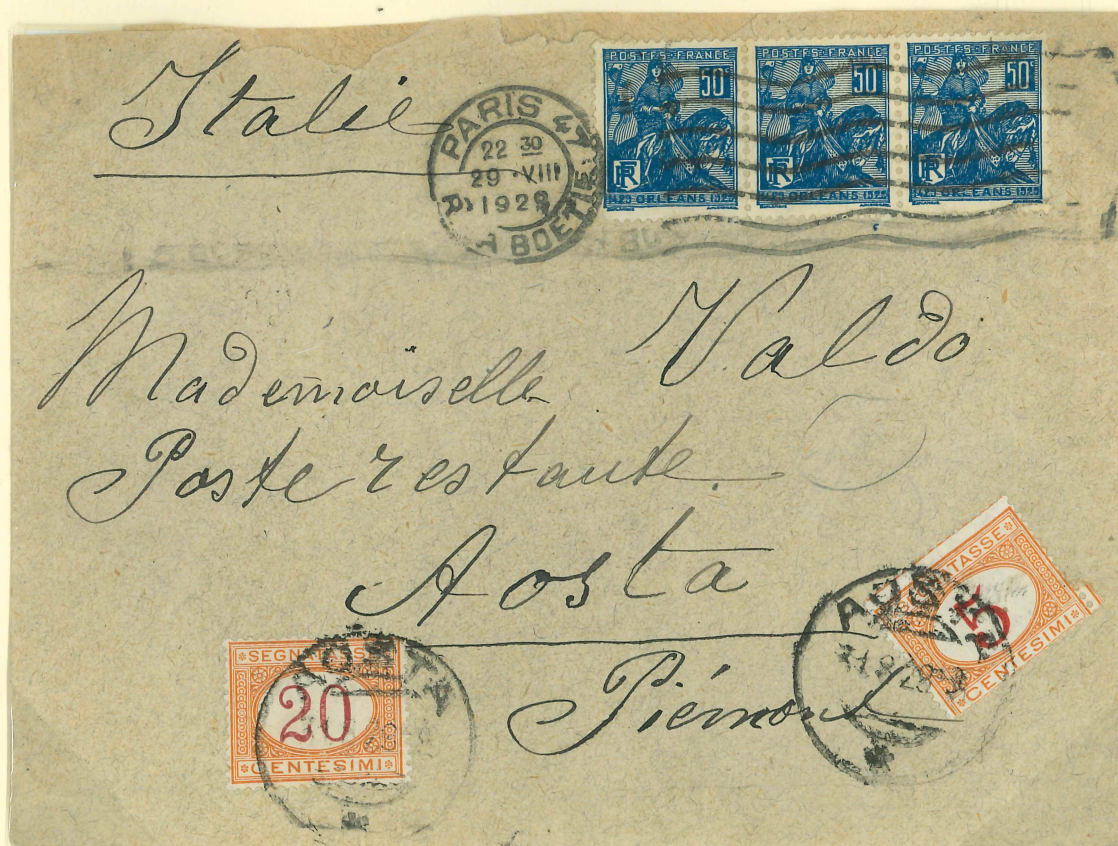 Italie
PARIS 47
22 30
29 · VIII
1929
R. LA BOETIE
POSTES · FRANCE
50c
RF
1429 ORLEANS 1929
POSTES · FRANCE
50c
RF
1429 ORLEANS 1929
POSTES · FRANCE
50c
RF
1429 ORLEANS 1929
Mademoiselle Valdo
Poste restante.
Aosta
Piémont
SEGNATASSE
20
CENTESIMI
AOSTA
TASSE
5
CENTESIMI
AOS